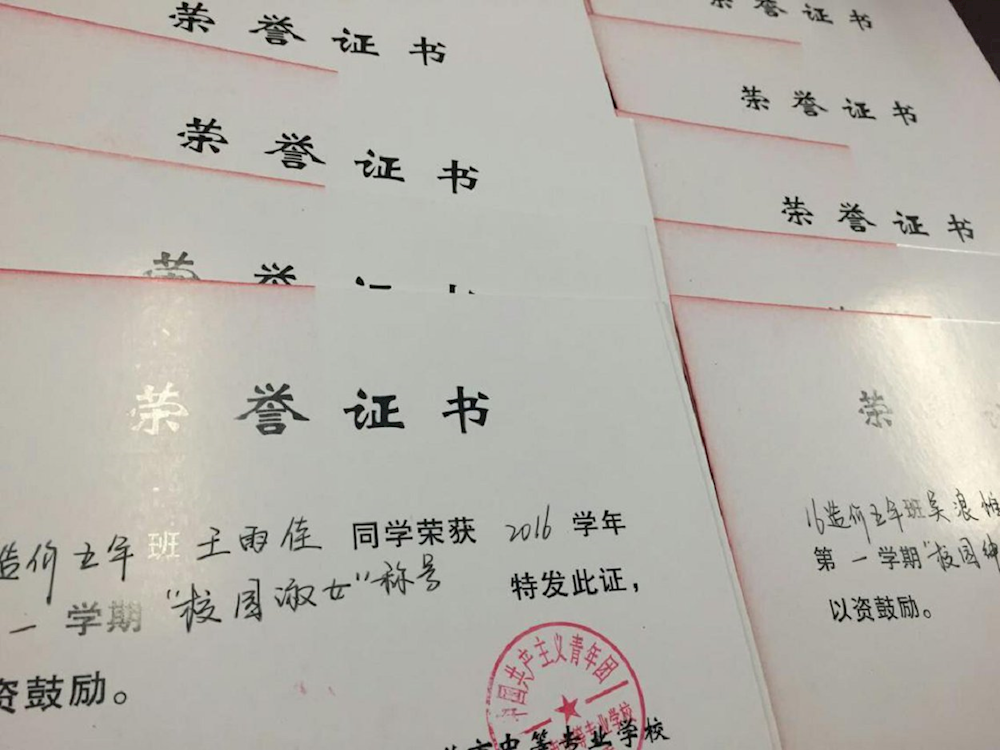 荣誉证书
荣誉证书
荣誉
荣誉证书
造价五年班 王雨佳 同学荣获 2016 学年
一 学期 "校园淑女"称号 特发此证,
资鼓励。
中国共产主义青年团
中等专业学校
荣誉证书
荣誉证书
荣誉证书
荣
16造价五年班吴浪
第一学期"校园绅
以资鼓励。